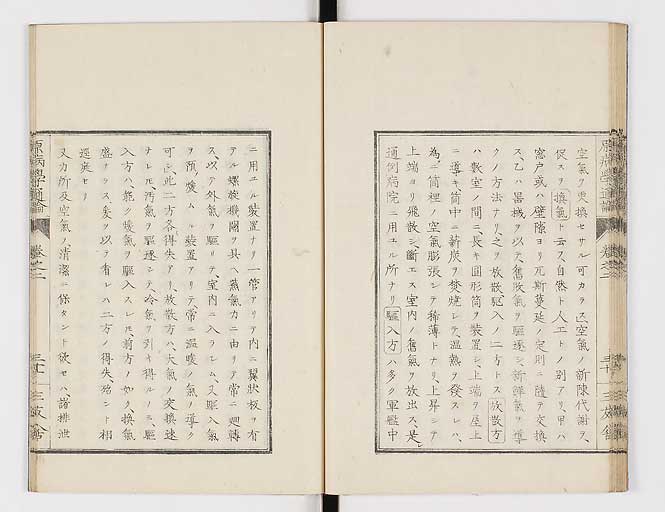 空氣ヲ更換セサル可カラス、空氣ノ新陳代謝ヲ
促スヲ換氣ト云フ、自然ト人工トノ別アリ、甲ハ
窓戸或ハ壁隙ヨリ瓦斯蔓延ノ定則ニ隨テ交換
ス、乙ハ器械ヲ以テ舊敗氣ヲ驅逐シ、新鮮氣ヲ導
クノ方法ナリ、之ヲ放散驅入ノ二方トス、放散方
ハ數室ノ間ニ長キ圓形筒ヲ裝置シ、上端ヲ屋上
ニ導キ筒中ニ薪炭ヲ焚燒シテ、溫熱ヲ發スレハ、
為ニ筒裡ノ空氣膨張シテ稀薄トナリ、上昇シテ
上端ヨリ飛散シ、斷エス室内ノ舊氣ヲ放出ス、是レ
通例病院ニ用エル所ナリ、驅入方ハ多ク軍艦中
ニ用エル裝置ナリ、一管アリテ内ニ翼狀板ヲ有
アル螺旋機關ヲ具ヘ蒸氣力ニ由リテ常ニ廻轉
ス、以テ外氣ヲ驅リテ室内ニ入ラシム、又驅入氣
ヲ預メ煖ムル裝置アリテ常ニ溫暖ノ氣ヲ導ク
可シ、此二方各得失アリ、放散方ハ、大氣ノ交換速
ナレ𪜈、汚氣ヲ驅逐シテ、冷氣ヲ引キ得ルノミ、驅
入方ハ、能ク煖氣ヲ驅入スレ𪜈、前方ノ如ク、換氣
盛ナラス、是ヲ以テ看レハ、二方ノ得失殆ント相
逕庭セリ
又力所及空氣ノ清潔ニ保タント欲セハ、諸排泄
原病學通論
卷之二
三十
三友舍
原病學通論
卷之二
三十一
三友舍